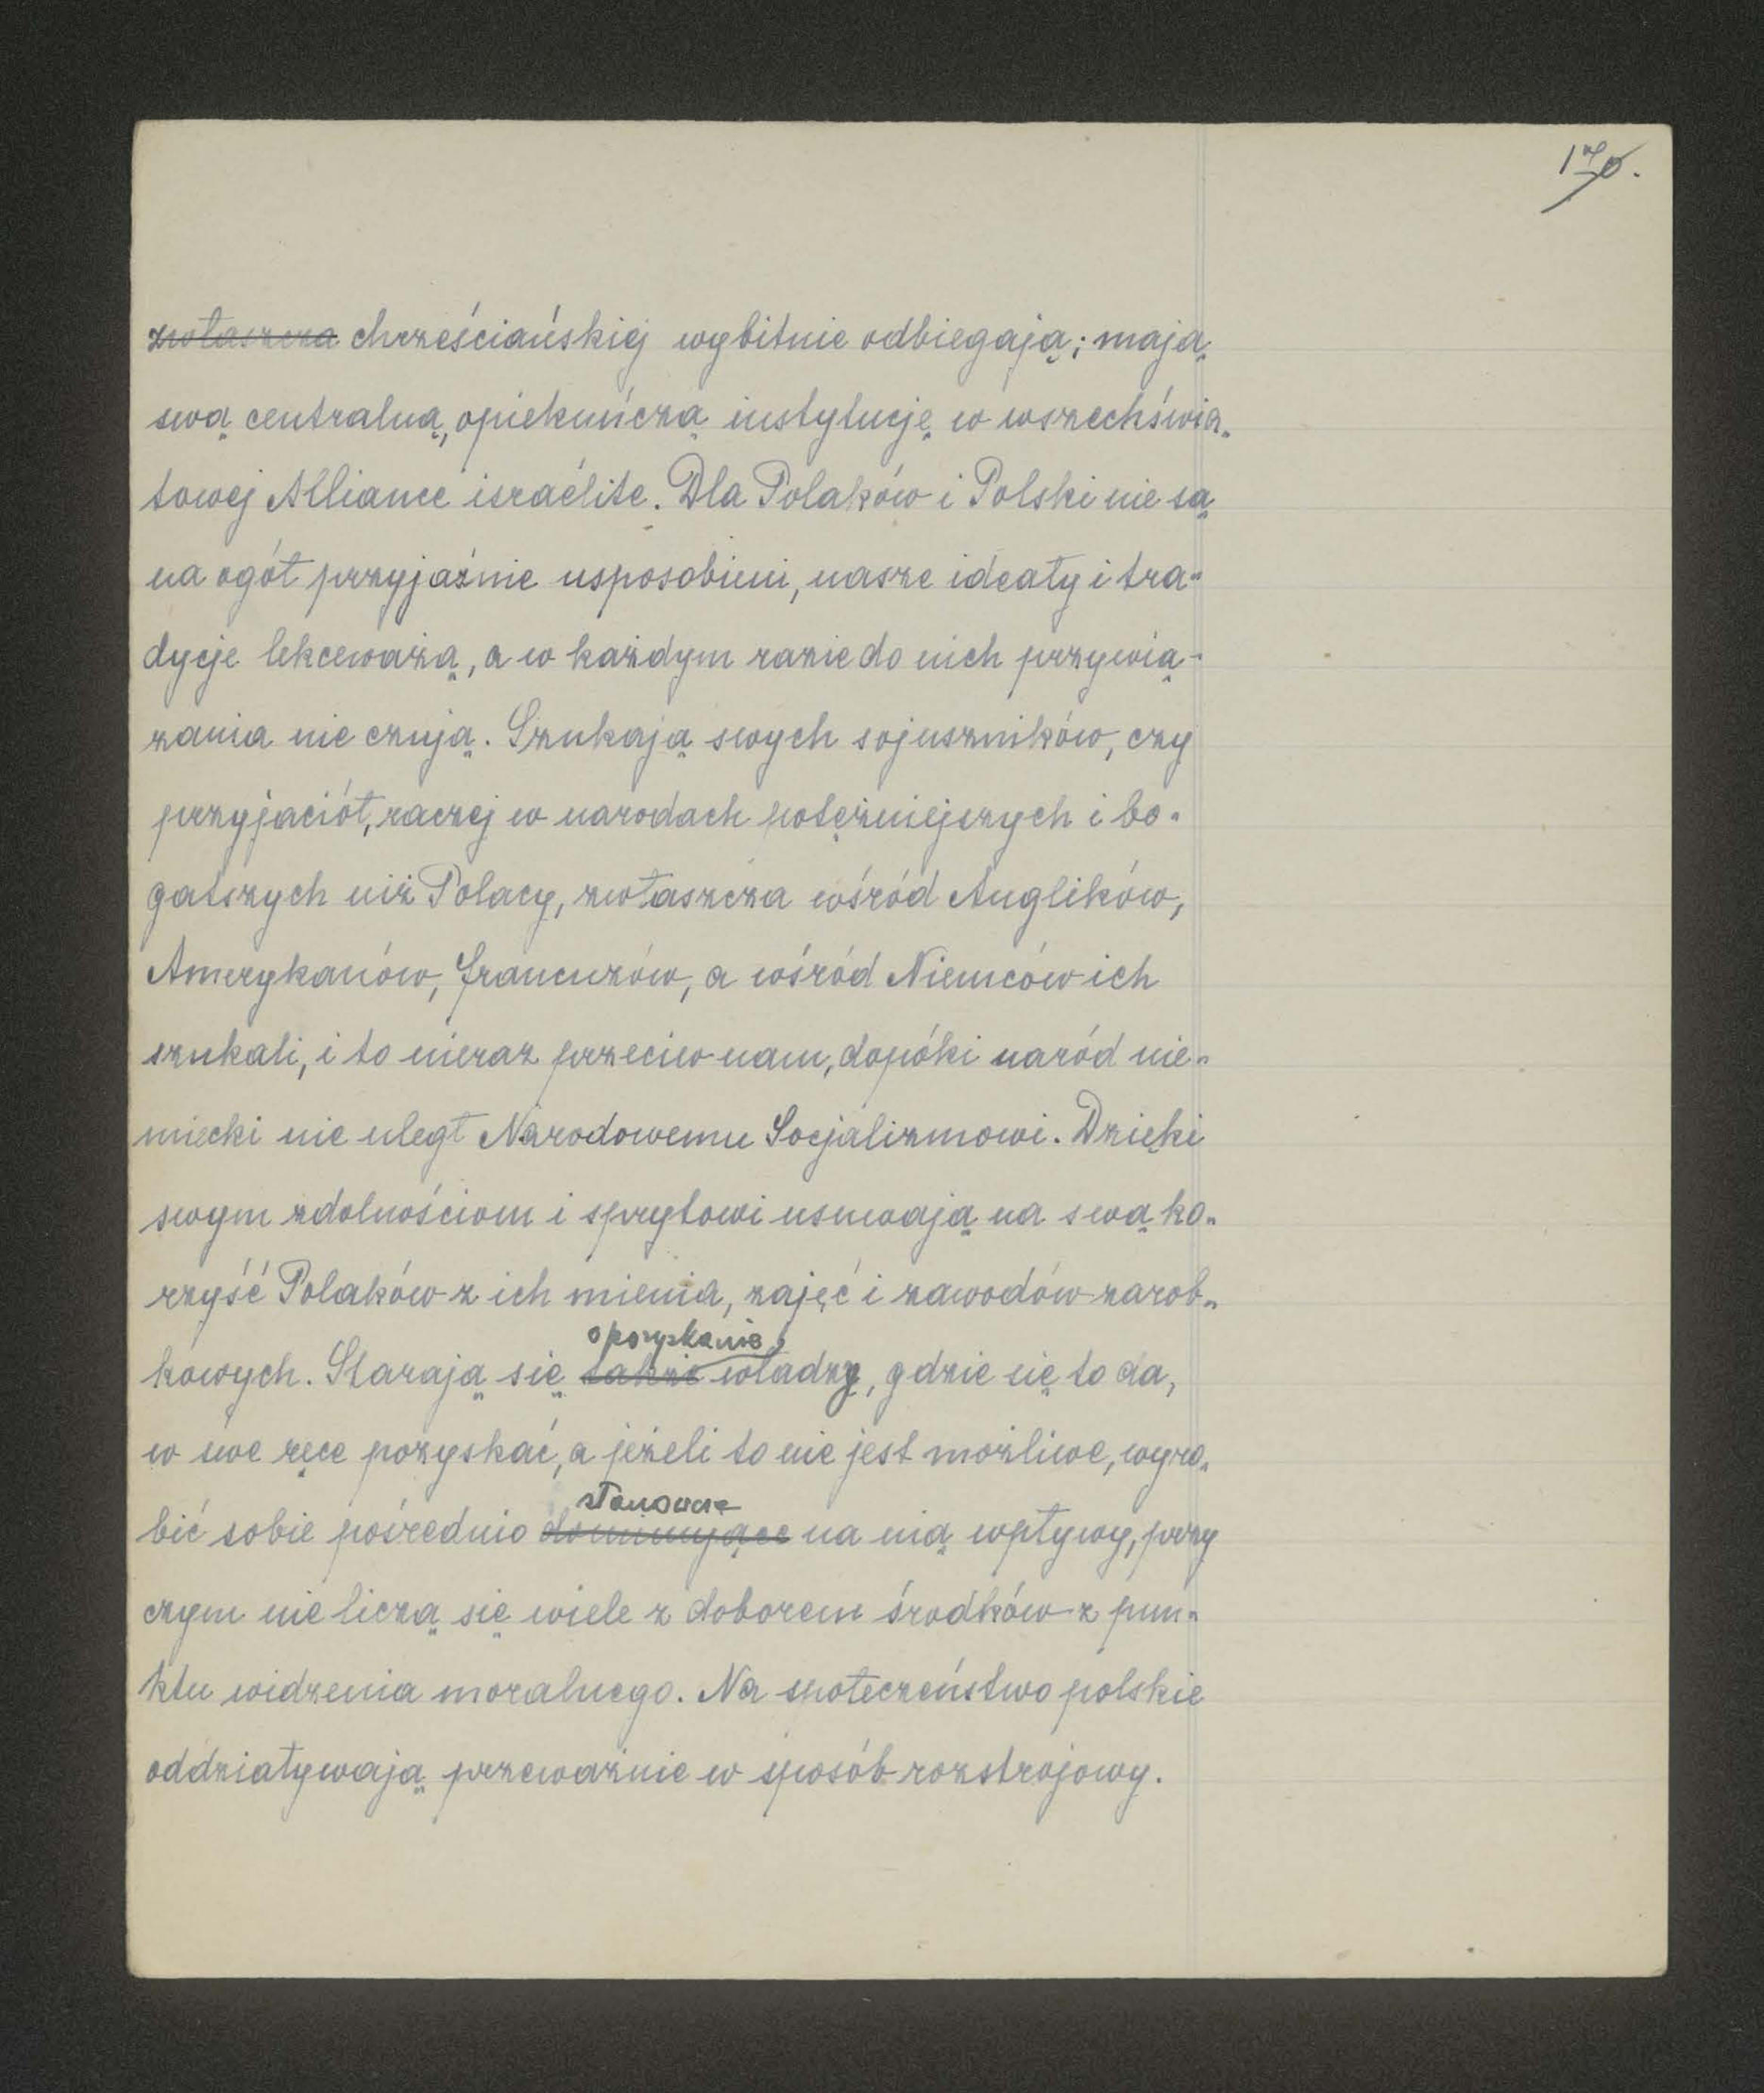 170.
zwłaszcza chrześciańskiej wybitnie odbiegają; mają
swą centralną, opiekuńczą instytucję w wszechświa„
towej Alliance israélite. Dla Polaków i Polski nie są
na ogół przyjaźnie usposobieni, nasze ideały i tra„
dycje lekceważą, a w każdym razie do nich przywią-
zania nie czują. Szukają swych sojuszników, czy
przyjaciół, raczej w narodach potężniejszych i bo„
gatszych niż Polacy, zwłaszcza wśród Anglików,
Amerykanów, francuzów, a wśród Niemców ich
szukali, i to nieraz przeciw nam, dopóki naród nie„
miecki nie uległ Narodowemu Socjalizmowi. Dzięki
swym zdolnościom i sprytowi usuwają na swą ko„
rzyść Polaków z ich mienia, zajęć i zawodów zarob„
o pozyskanie
kowych. Starają się także władzy, gdzie się to da,
w swe ręce pozyskać, a jeżeli to nie jest możliwe, wyro„
stanowcze
bić sobie pośrednio dominujące na nią wpływy, przy
czym nie liczą się wiele z doborem środków z pun„
ktu widzenia moralnego. Na społeczeństwo polskie
oddziaływają przeważnie w sposób rozstrojowy.